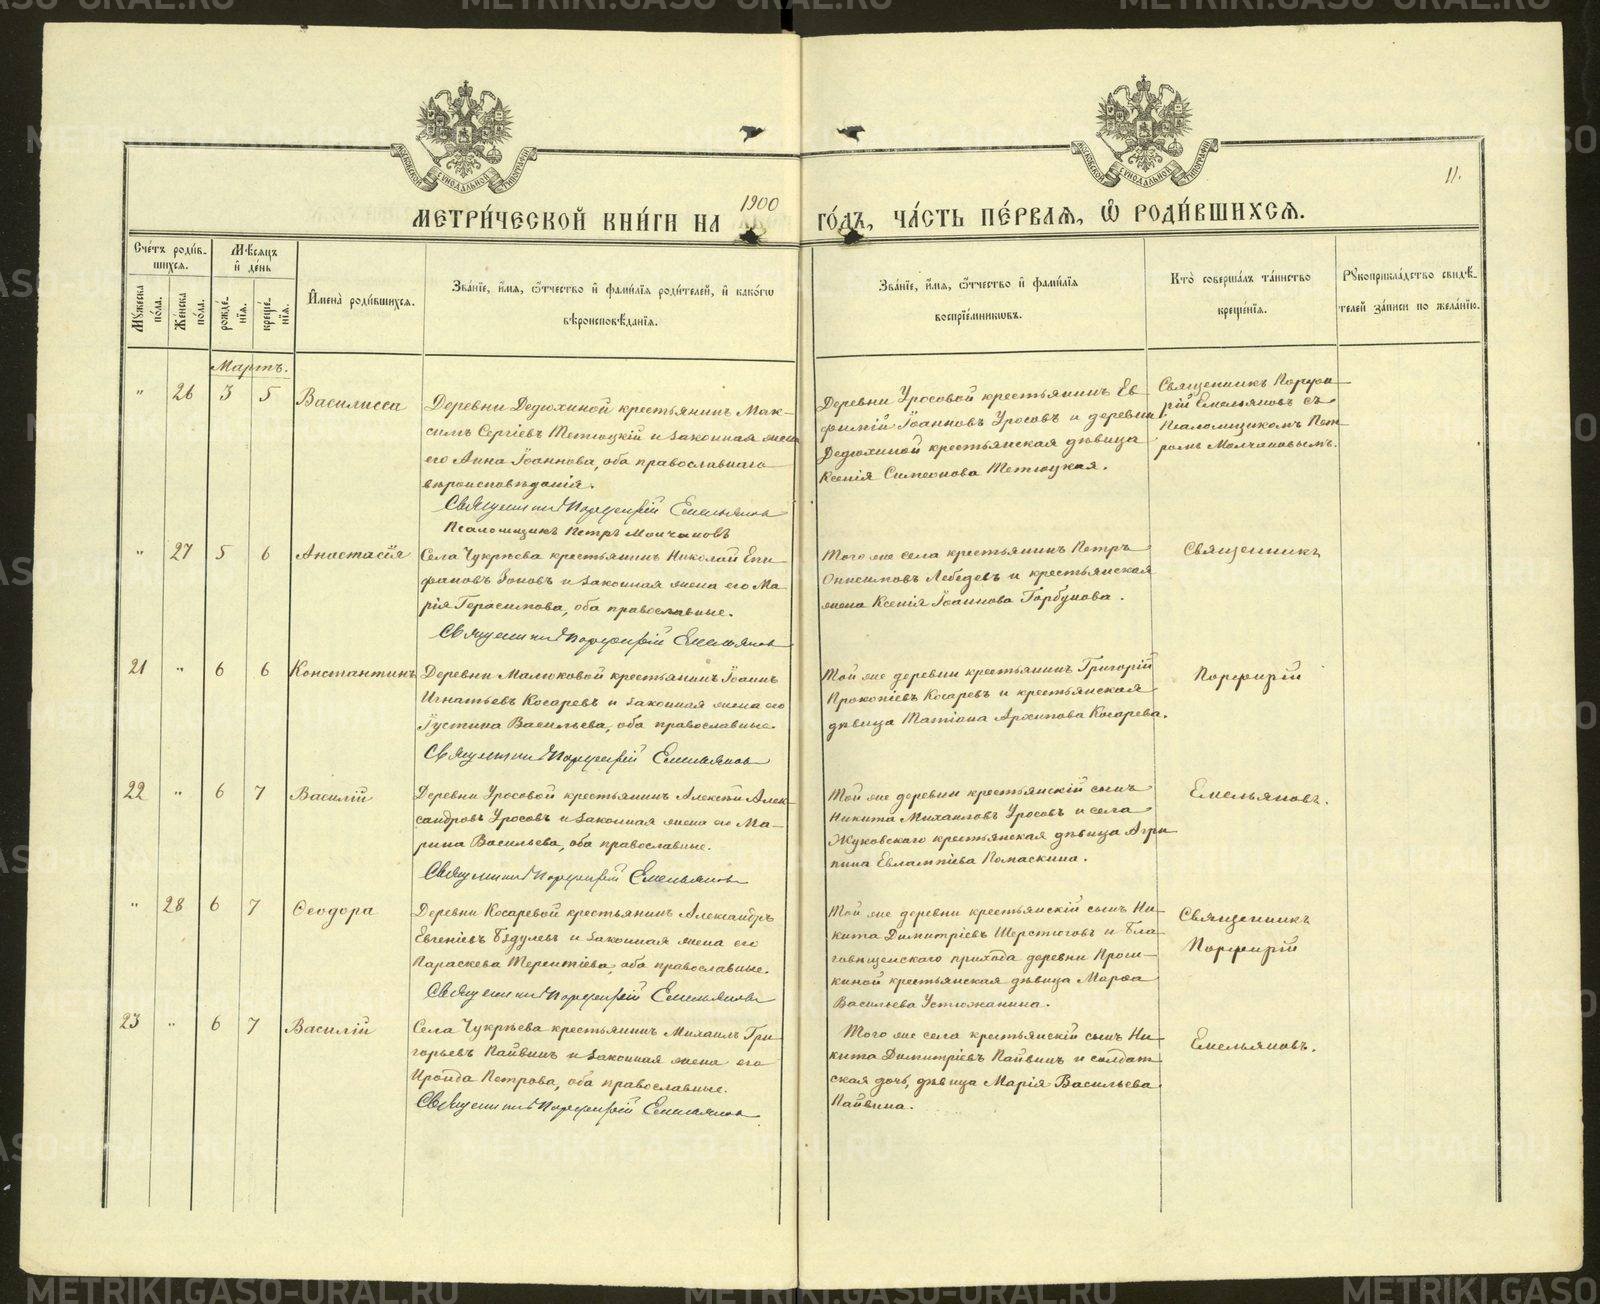 METRIKI.GASO-URAL.RU
МОСКОВСКОЙ СѴНОДАЛЬНОЙ ТИПОГРАФІИ
МОСКОВСКОЙ СѴНОДАЛЬНОЙ ТИПОГРАФІИ
11.
МЕТРИ́ЧЕСКОЙ КНИ́ГИ НА 1900 ГО́ДЪ, ЧА́СТЬ ПЕ́РВАѦ, Ѿ РОДИ́ВШИХСѦ.
Сче́тъ роди́в-
шихсѧ.
Мꙋ́жеска по́ла.
Же́нска по́ла.
Мѣ́сѧцъ
и҆ де́нь
рожде́нїѧ.
креще́нїѧ.
И҆мена̀ роди́вшихсѧ.
Зва́нїе, и҆́мѧ, ѻ҆́тчество и҆ фамилїѧ роди́телей, и҆ како́гѡ
вѣроисповѣ́данїѧ.
Зва́нїе, и҆́мѧ, ѻ҆́тчество и҆ фами́лїѧ
воспрїе́мниковъ.
Кто̀ соверша́лъ та́инство
креще́нїѧ.
Рꙋкоприкла́дство свидѣ́-
телей за́писи по жела́нїю.
Мартъ.
" 26 3 5 Василисса
Деревни Дедюхиной крестьянинъ Мак-
симъ Сергіевъ Тетюцкій и законная жена
его Анна Іоаннова, оба православнаго
вѣроисповѣданія.
Священникъ Порфирій Емельяновъ
Псаломщикъ Петръ Молчановъ
Деревни Уросовой крестьянинъ Ев-
фимій Іоанновъ Уросовъ и деревни
Дедюхиной крестьянская дѣвица
Ксенія Симеонова Тетюцкая.
Священникъ Порфи-
рій Емельяновъ съ
Псаломщикомъ Пет-
ромъ Молчановымъ.
" 27 5 6 Анастасія
Села Чукрѣева крестьянинъ Николай Епи-
фановъ Зоновъ и законная жена его Ма-
рія Герасимова, оба православные.
Священникъ Порфирій Емельяновъ
Того же села крестьянинъ Петръ
Онисимовъ Лебедевъ и крестьянская
жена Ксенія Іоаннова Горбунова.
Священникъ
21 " 6 6 Константинъ
Деревни Малюковой крестьянинъ Іоаннъ
Игнатьевъ Косаревъ и законная жена его
Іустина Васильева, оба православные.
Священникъ Порфирій Емельяновъ
Той же деревни крестьянинъ Григорій
Прокопіевъ Косаревъ и крестьянская
дѣвица Татіана Архипова Косарева.
Порфирій
22 " 6 7 Василій
Деревни Уросовой крестьянинъ Алексѣй Алек-
сандровъ Уросовъ и законная жена его Ма-
рина Васильева, оба православные.
Священникъ Порфирій Емельяновъ
Той же деревни крестьянскій сынъ
Никита Михаиловъ Уросовъ и села
Жуковскаго крестьянская дѣвица Агри-
пина Евлампіева Помаскина.
Емельяновъ.
" 28 6 7 Ѳеодора
Деревни Косаревой крестьянинъ Александръ
Евгеніевъ Бздулевъ и законная жена его
Параскева Терентіева, оба православные.
Священникъ Порфирій Емельяновъ
Той же деревни крестьянскій сынъ Ни-
кита Димитріевъ Шерстюговъ и Бла-
говѣщенскаго прихода деревни Прош-
киной крестьянская дѣвица Марѳа
Васильева Устюжанина.
Священникъ
Порфирій
23 " 6 7 Василій
Села Чукрѣева крестьянинъ Михаилъ Гри-
горьевъ Пайвинъ и законная жена его
Ироида Петрова, оба православные.
Священникъ Порфирій Емельяновъ
Того же села крестьянскій сынъ Ни-
кита Димитріевъ Пайвинъ и солдат-
ская дочь, дѣвица Марія Васильева
Пайвина.
Емельяновъ.